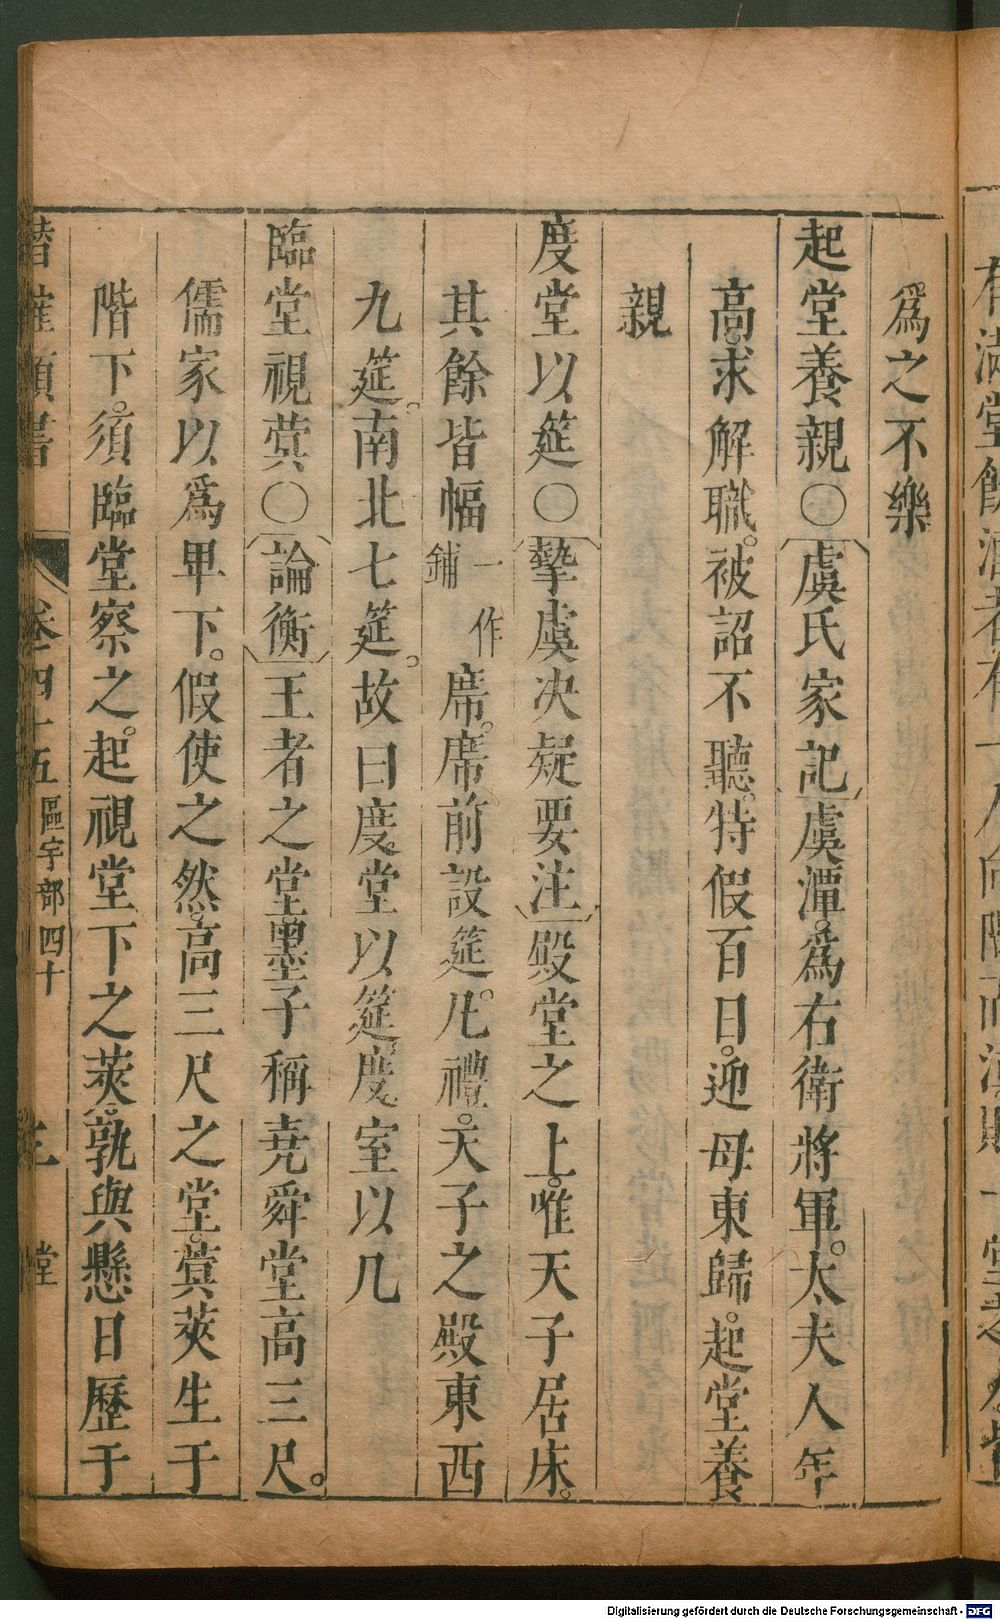 爲之不樂
起堂養親○虞氏家記虞潭爲右衛將軍太夫人年
高求解職被詔不聽特假百日迎母東歸起堂養
親
度堂以筵○摯虞决疑要注殿堂之上唯天子居床
其餘皆幅一作鋪席席前設筵凡禮天子之殿東西
九筵南北七筵故曰度堂以筵度室以几
臨堂視蓂○論衡王者之堂墨子稱尭舜堂高三尺
儒家以爲卑下假使之然高三尺之堂蓂莢生于
階下須臨堂察之起視堂下之莢孰與懸日歷于
潛確類書 卷四十五 區宇部四十 堂
Digitalisierung gefördert durch die Deutsche Forschungsgemeinschaft - DFG